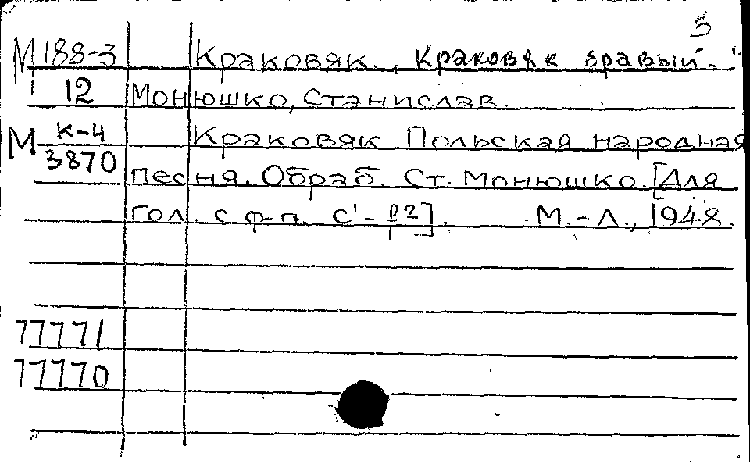 5
М 188-3 Краковяк. "Краковяк бравый."
12 Монюшко, Станислав.
М К-4 Краковяк. Польская народная
3870 песня. Обраб. Ст. Монюшко. [Для
гол. с ф-п. c'-f2]. М.-Л., 1948.
77771
77770